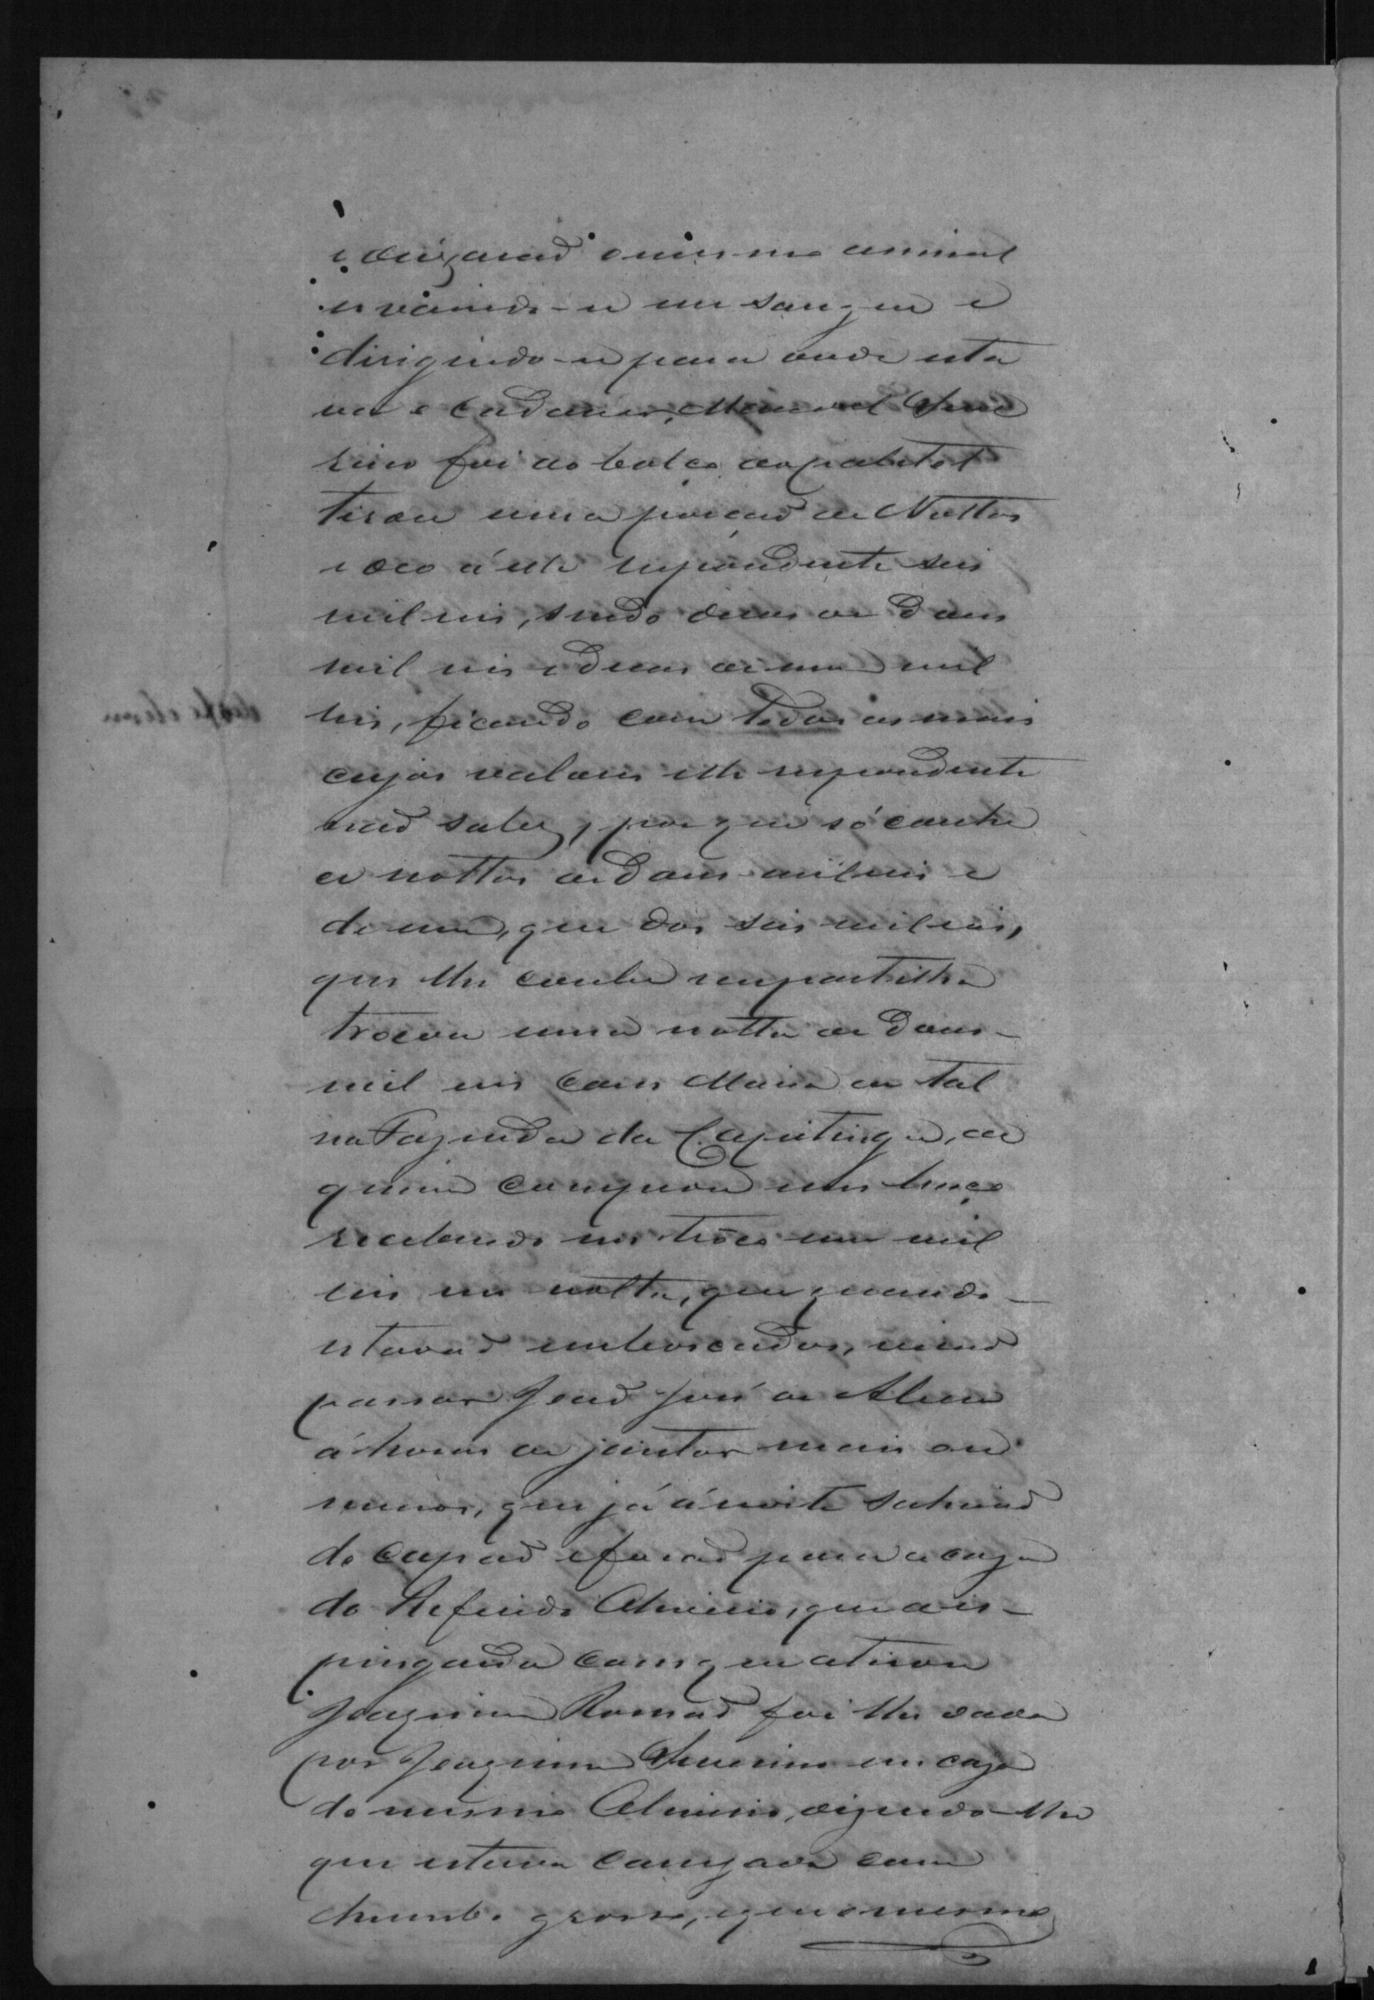 e deixarão o mesmo animal
esvaindo-se em sangue e
dirigindo-se para onde esta
va o cadaver, Manoel Seve
rino foi ao bolço do palitot
tirou uma porção de Nottas
e deo á elle respondente seis
mil reis, sendo duas de dous
mil reis e duas de um mil
reis, ficando com todas as mais
cujos valores elle respondente
não sabe, porque só conhe
ce nottas de dous mil reis e
de um, que dos seis mil reis,
que lhe coube em partilha
trocou uma notta de dous
mil reis com Maria de tal
na Fazenda da Capitinga, de
quem comprou um lenço
recebendo em troco um mil
reis em notta, que quando
estavão emboscados, virão
passar João José de
á horas de jantar mais ou
menos, que já á noite sahirão
do capão e forão para a caza
do Referido, que a es-
pingarda com que atirou
Joaquim Romão foi lhe dada
por Joaquim Severino em caza
do mesmo, dizendo-lhe
que estava carregada com
chumbo grosso, e que o mesmo